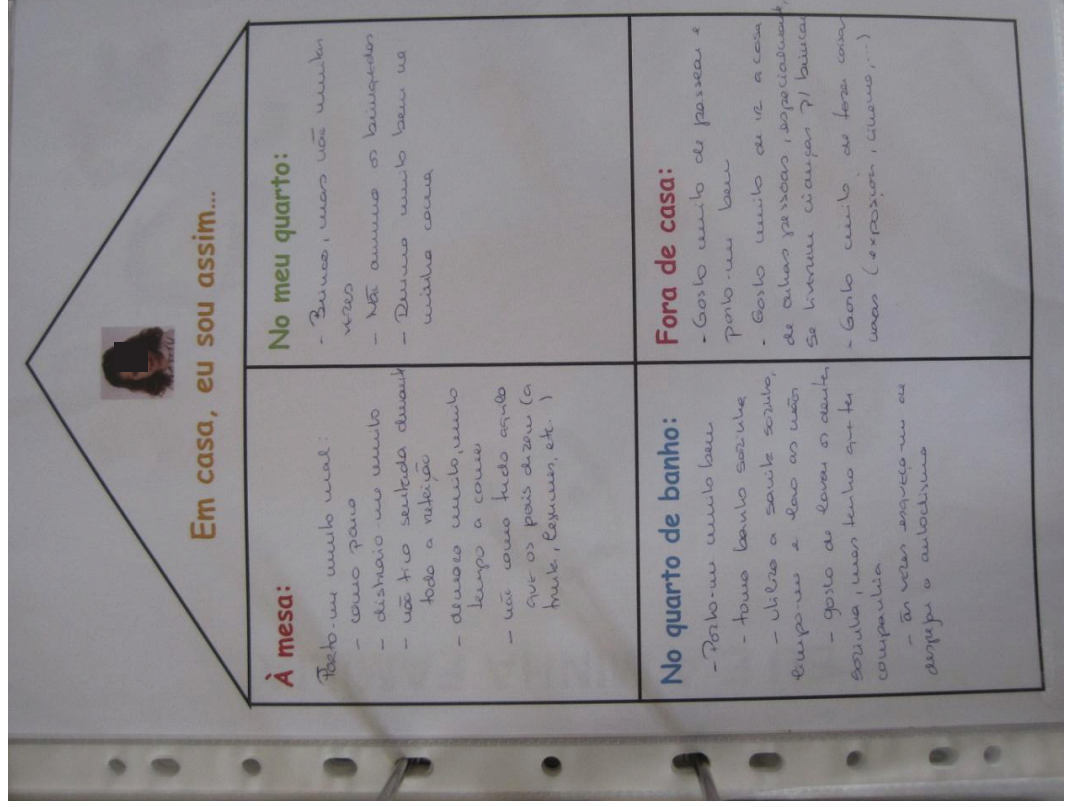 Em casa, eu sou assim...
À mesa:
Porto-me muito mal:
- como pouco
- distraio-me muito
- não fico sentada durante
toda a refeição
- demoro muito, muito
tempo a comer
- não como tudo aquilo
que os pais dizem (a
fruta, legumes, etc.)
No meu quarto:
- Brinco, mas não muitas
vezes
- Não arrumo os brinquedos
- Durmo muito bem na
minha cama
No quarto de banho:
- Porto-me muito bem
- tomo banho sozinha
- Utilizo a sanita sozinha,
limpo-me e lavo as mãos
- gosto de lavar os dentes
sozinha, mas tenho que ter
companhia
- às vezes esqueço-me de
despejar o autoclismo
Fora de casa:
- Gosto muito de passear e
porto-me bem
- Gosto muito de ir a casa
de outras pessoas, especialmente,
se tiverem crianças p/ brincar
- Gosto muito de fazer coisas
novas (exposições, cinema,...)